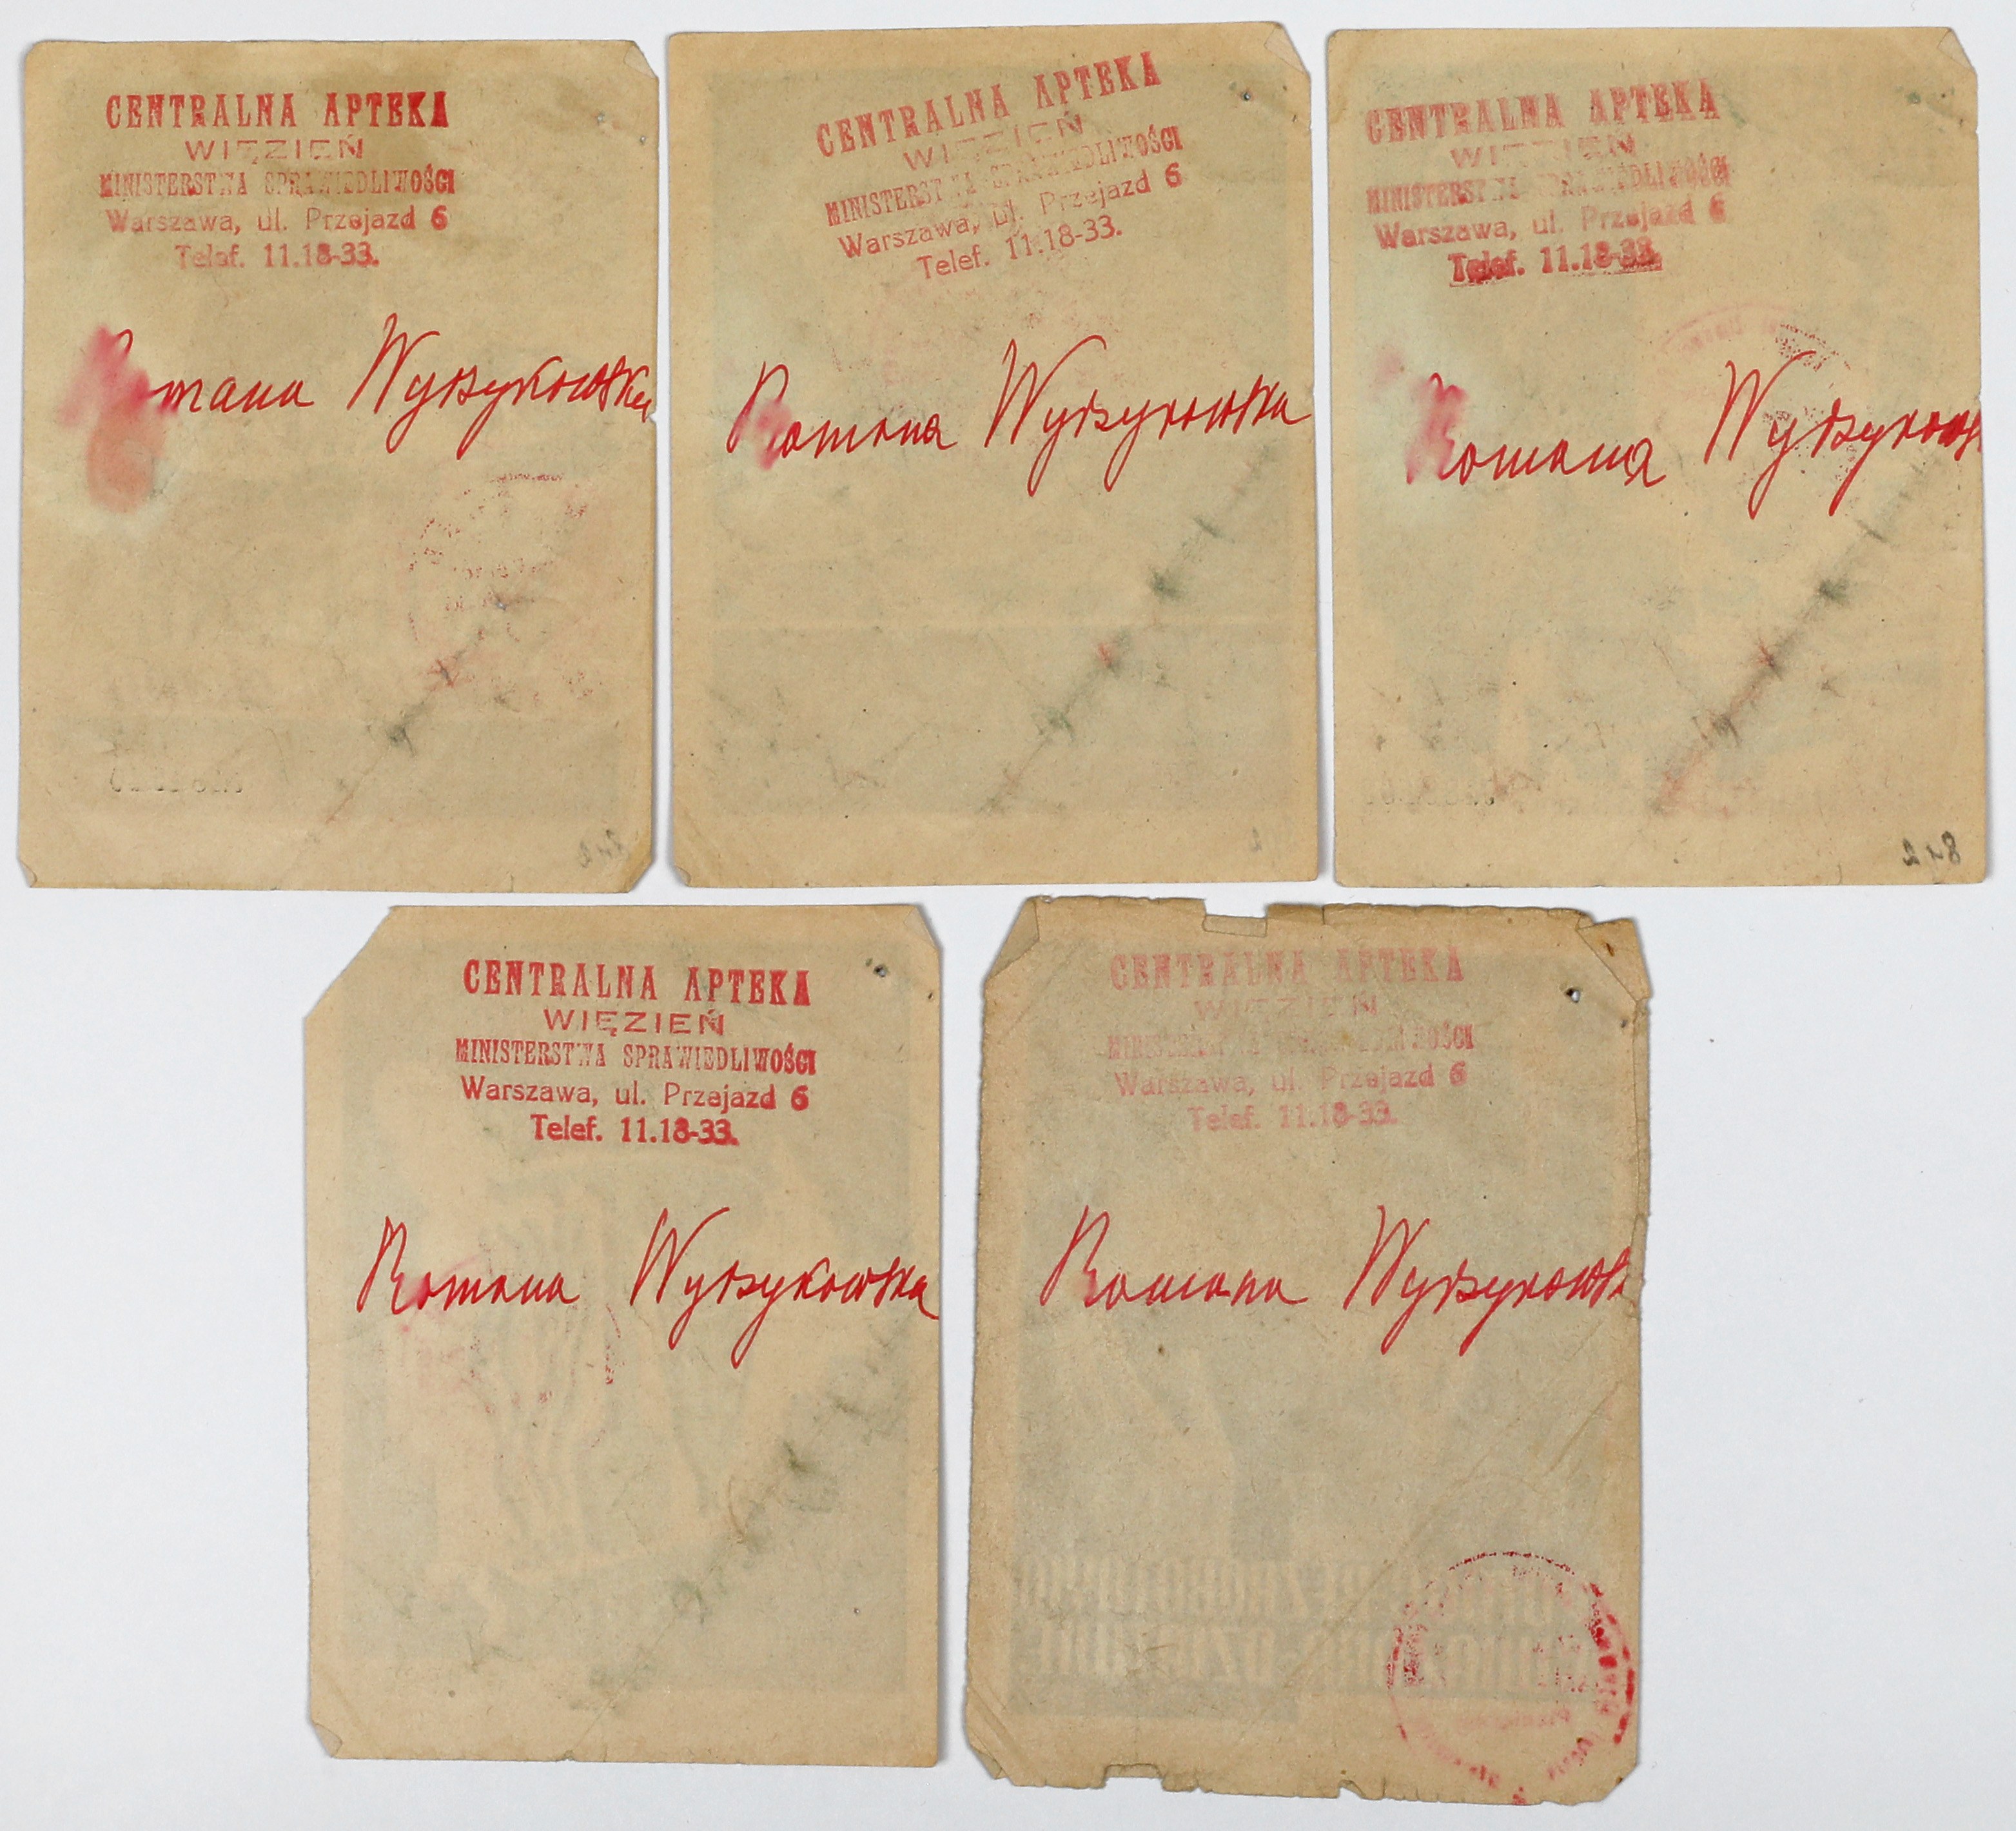 CENTRALNA APTEKA
WIĘZIEŃ
MINISTERSTWA SPRAWIEDLIWOŚCI
Warszawa, ul. Przejazd 6
Telef. 11.18-33.
Romana Wyszykowska
CENTRALNA APTEKA
WIĘZIEŃ
MINISTERSTWA SPRAWIEDLIWOŚCI
Warszawa, ul. Przejazd 6
Telef. 11.18-33.
Romana Wyszykowska
CENTRALNA APTEKA
WIĘZIEŃ
MINISTERSTWA SPRAWIEDLIWOŚCI
Warszawa, ul. Przejazd 6
Telef. 11.18-33.
Romana Wyszykows
CENTRALNA APTEKA
WIĘZIEŃ
MINISTERSTWA SPRAWIEDLIWOŚCI
Warszawa, ul. Przejazd 6
Telef. 11.18-33.
Romana Wyszykowska
CENTRALNA APTEKA
WIĘZIEŃ
MINISTERSTWA SPRAWIEDLIWOŚCI
Warszawa, ul. Przejazd 6
Telef. 11.18-33.
Romana Wyszykowsk